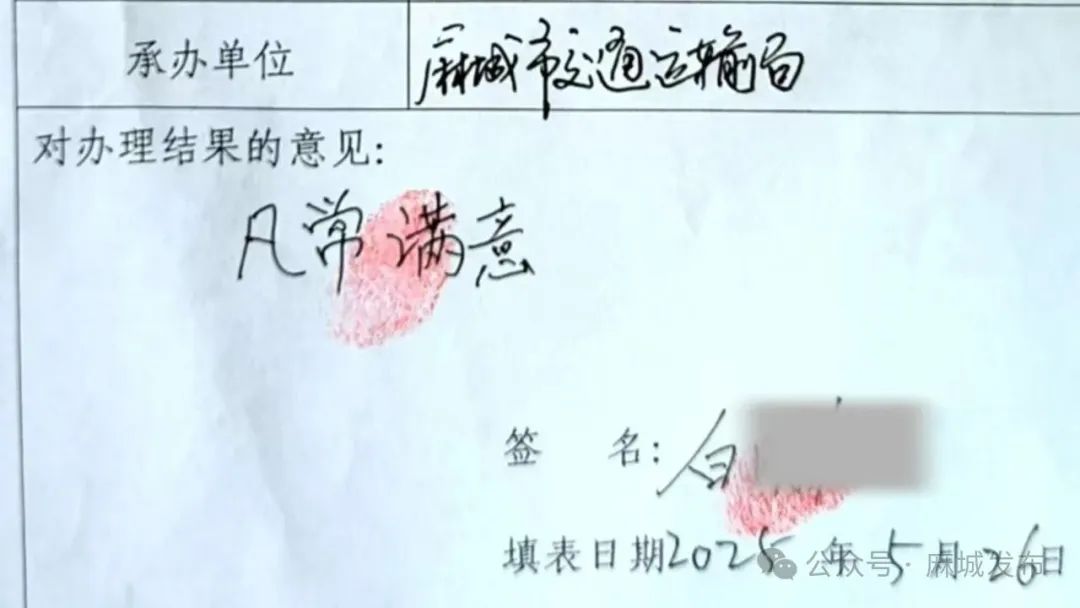 承办单位 麻城市交通运输局
对办理结果的意见:
凡常满意
签 名:
填表日期2025年5月26日
公众号·麻城发布